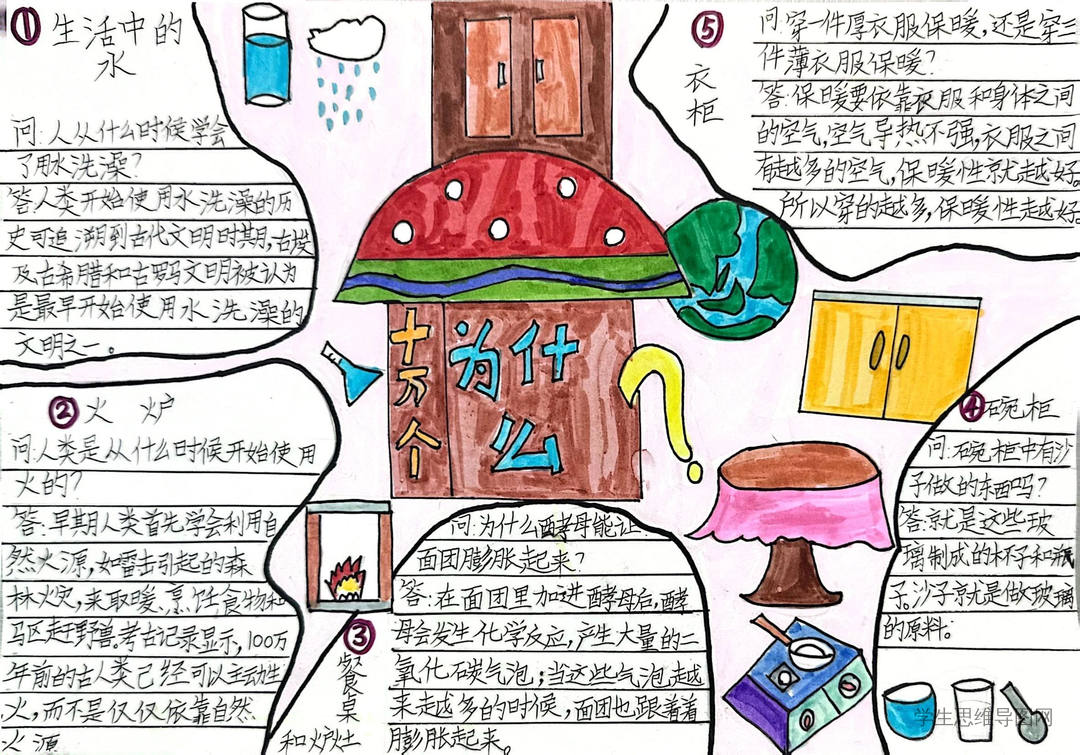 ① 生活中的
水
问:人从什么时候学会
了用水洗澡?
答:人类开始使用水洗澡的历
史可追溯到古代文明时期,古埃
及古希腊和古罗马文明被认为
是最早开始使用水洗澡的
文明之一。
② 火炉
问:人类是从什么时候开始使用
火的?
答:早期人类首先学会利用自
然火源,如雷击引起的森
林火灾,来取暖、烹饪食物和
驱赶野兽。考古记录显示,100万
年前的古人类已经可以主动生
火,而不是仅仅依靠自然
火源
十万个
为什么
③
餐桌
和炉灶
问:为什么酵母能让
面团膨胀起来?
答:在面团里加进酵母后,酵
母会发生化学反应,产生大量的二
氧化碳气泡;当这些气泡越
来越多的时候,面团也跟着着
膨胀起来。
④ 碗柜
问:碗柜中有沙
子做的东西吗?
答:就是这些玻
璃制成的杯子和瓶
子。沙子就是做玻璃
的原料。
⑤
衣柜
问:穿一件厚衣服保暖,还是穿三
件薄衣服保暖?
答:保暖要依靠衣服和身体之间
的空气,空气导热不强,衣服之间
有越多的空气,保暖性就越好。
所以穿的越多,保暖性越好。
学生思维导图网